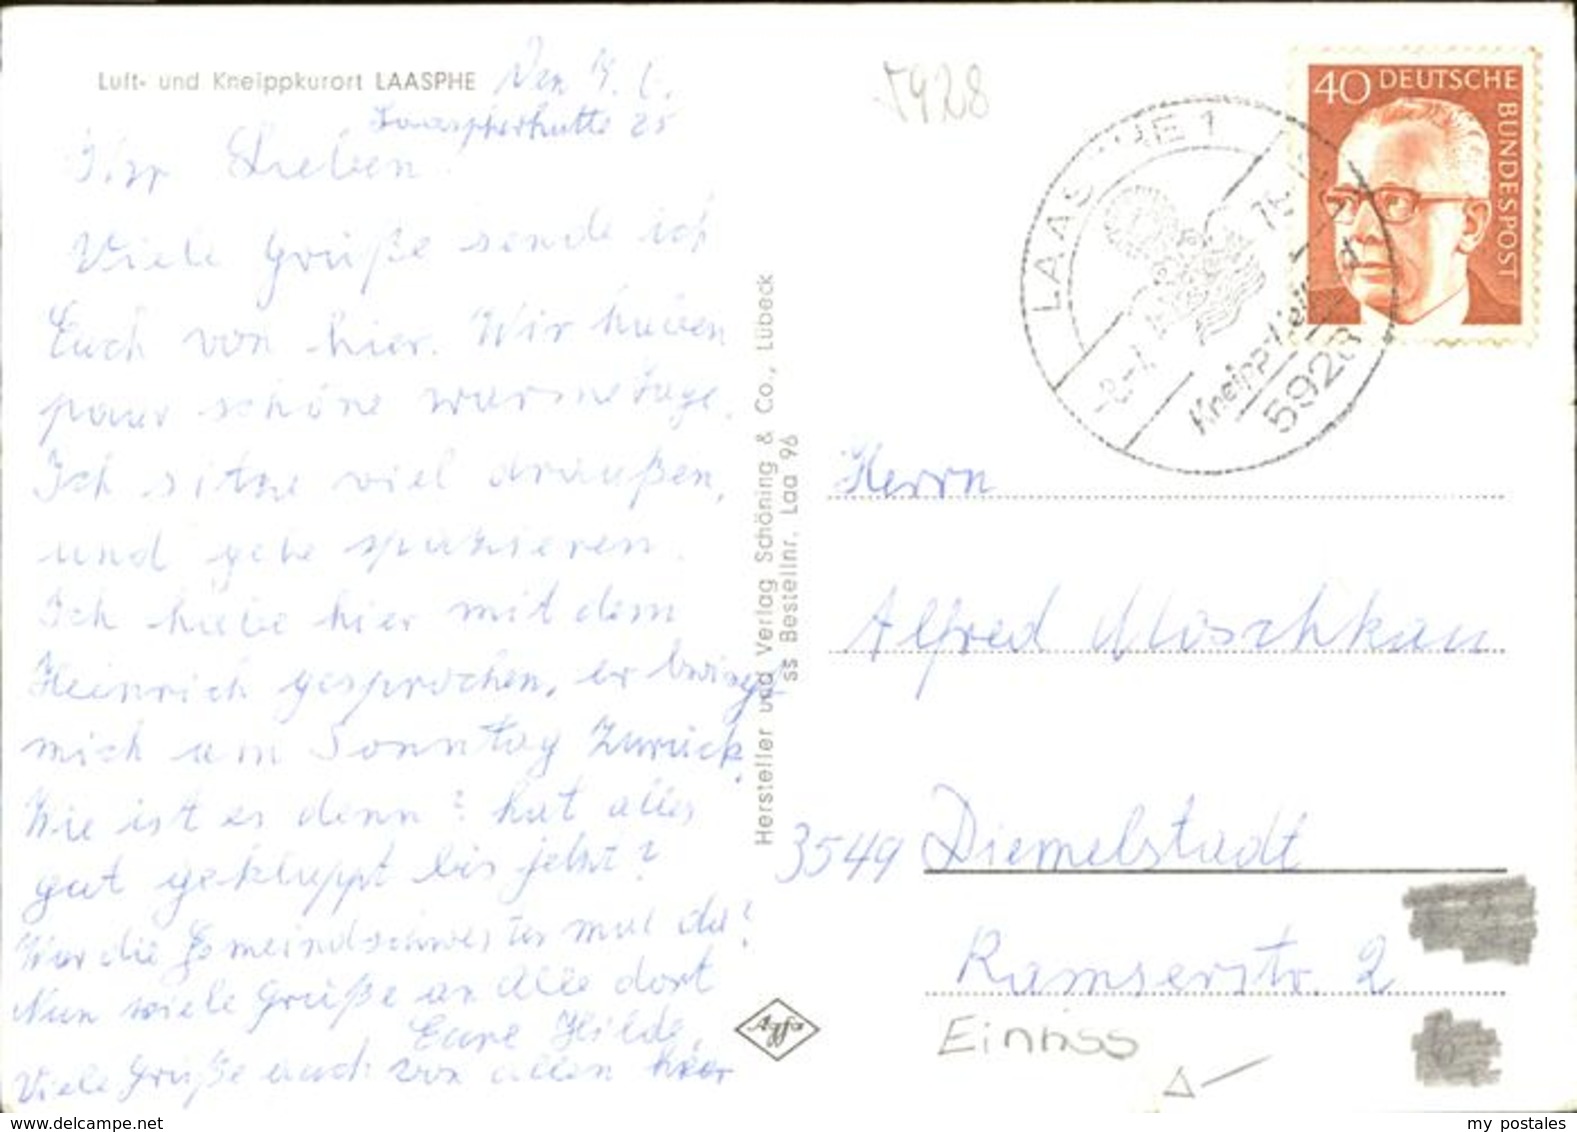 Luft- und Kneippkurort LAASPHE
Laaspherhütte 25
Ihr Lieben
Viele Grüße sende ich
Euch von hier. Wir haben
paar schöne warme Tage.
Ich sitze viel draußen,
und gehe spazieren.
Ich habe hier mit dem
Heinrich gesprochen, er bringt
mich am Sonntag Zurück.
Wie ist es denn? hat alles
gut geklappt bis jetzt?
War die Gemeindschwester mal da?
Nun viele Grüße an Alle dort
Eure Hilde,
Viele Grüße auch von allen hier
Hersteller und Verlag Schöning & Co., Lübeck
ss Bestellnr. Laa 96
Agfa
5928
LAASPHE 1
Kneipp-Heilbad
5928
40 DEUTSCHE
BUNDESPOST
Herrn
Alfred Moschkau
3549 Diemelstadt
Ramserstr. 2
Einriss
www.delcampe.net
my postales